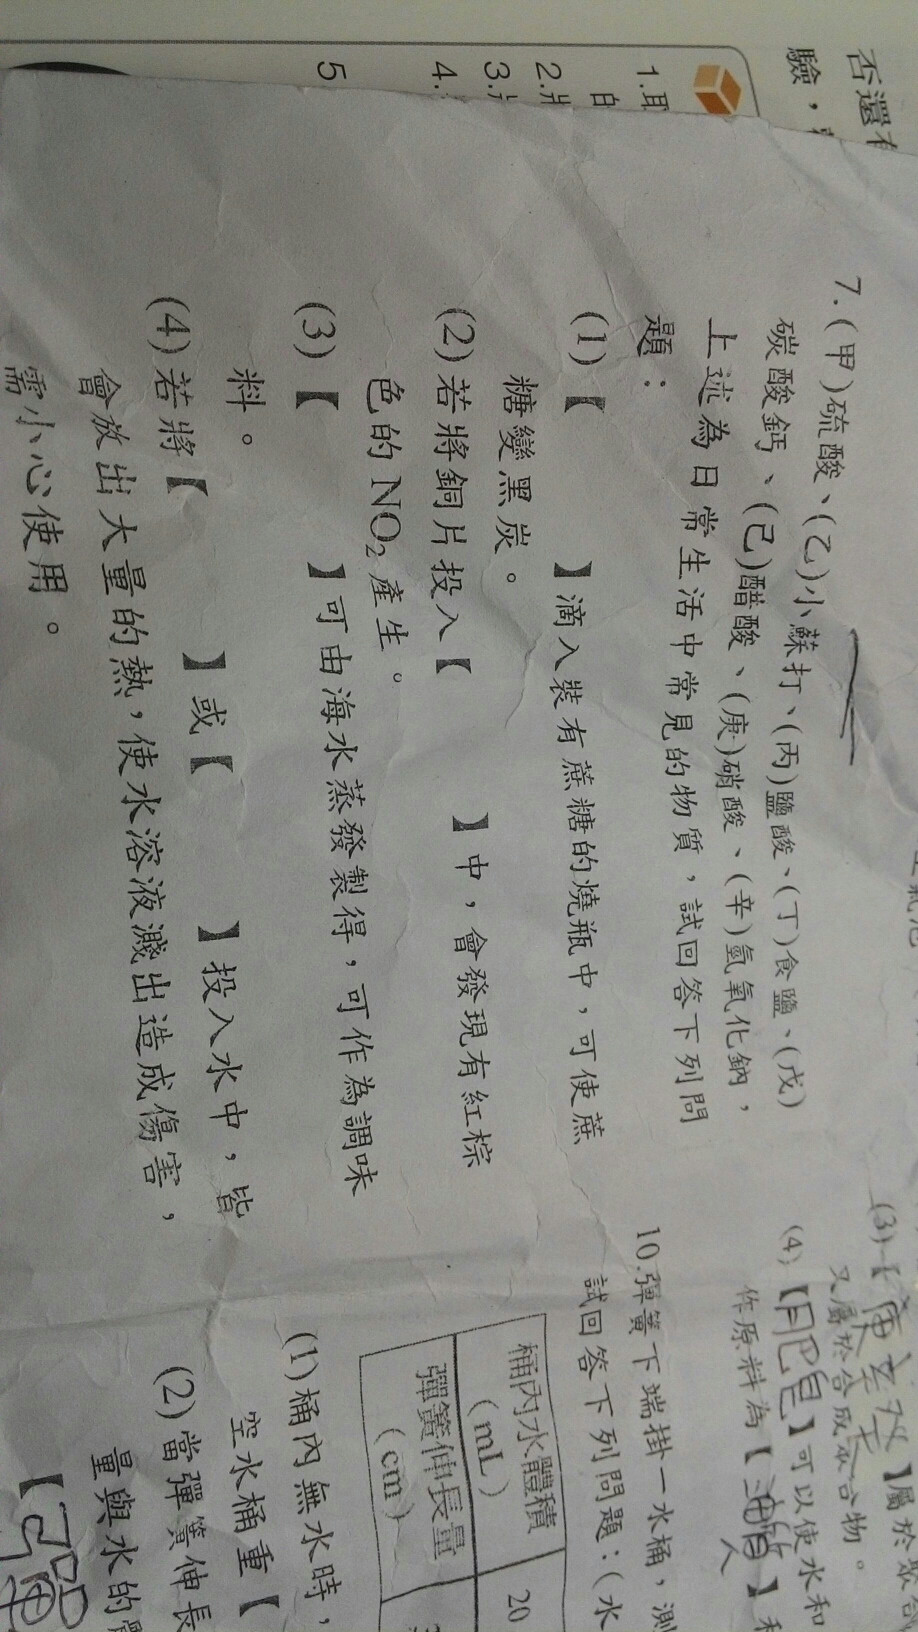 否還有
驗，
1.取
自
2.將
3.
4.
5
7.(甲)硫酸、(乙)小蘇打、(丙)鹽酸、(丁)食鹽、(戊)
碳酸鈣、(己)醋酸、(庚)硝酸、(辛)氫氧化鈉，
上述為日常生活中常見的物質，試回答下列問
題：
(1)【 】滴入裝有蔗糖的燒瓶中，可使蔗
糖變黑炭。
(2)若將銅片投入【 】中，會發現有紅棕
色的NO₂產生。
(3)【 】可由海水蒸發製得，可作為調味
料。
(4)若將【 】或【 】投入水中，皆
會放出大量的熱，使水溶液濺出造成傷害，
需小心使用。
(3)【 】屬於聚合
又屬於合成聚合物。
(4)【肥皂】可以使水和
作原料為【油脂】和
人
10.彈簧下端掛一水桶，測
試回答下列問題：(水
桶內水體積
(mL)
20
彈簧伸長量
(cm)
(1)桶內無水時，
空水桶重【
(2)當彈簧伸長
量與水的體
【